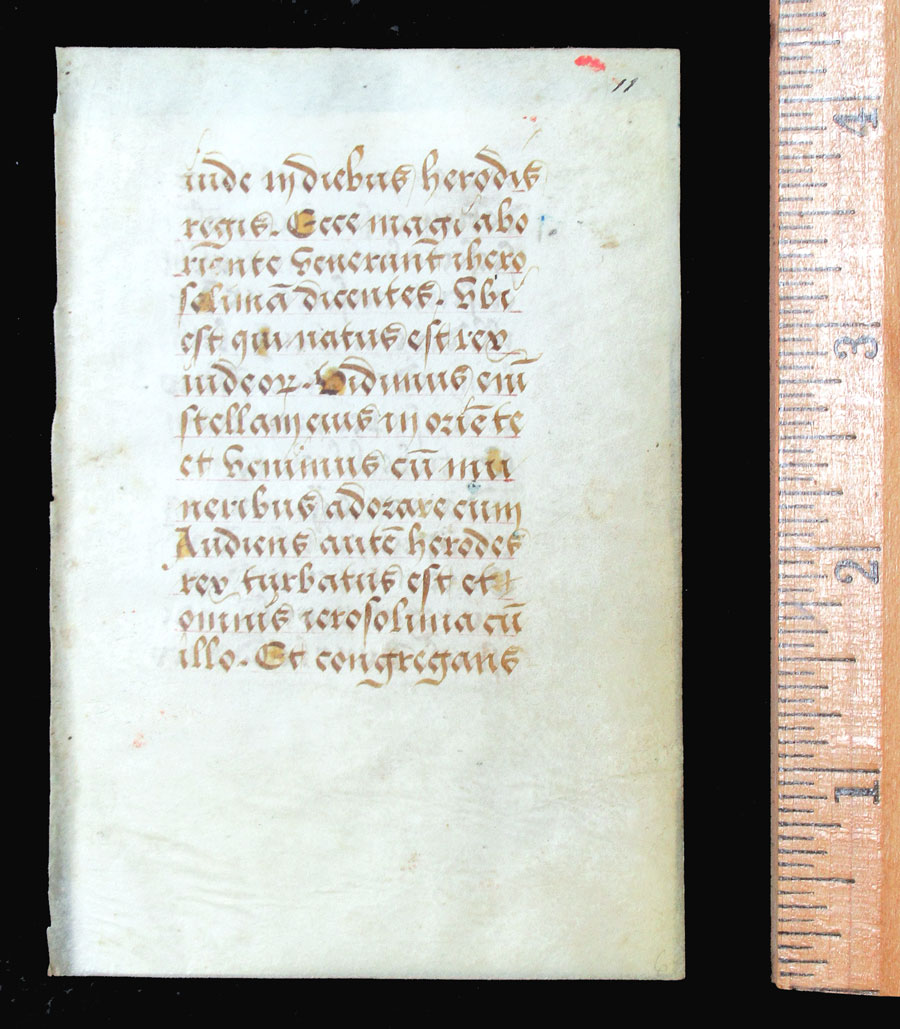 11
iude in diebus herodis
regis. Ecce magi abo
riente venerunt ihero
solimā dicentes. Vbi
est qui natus est rex
iudeoꝝ. Vidimus enī
stellam eius in oriēte
et venimus cū mu
neribus adorare eum
Audiens autē herodes
rex turbatus est et
omnis ierosolima cū
illo. Et congregans
4
3
2
1